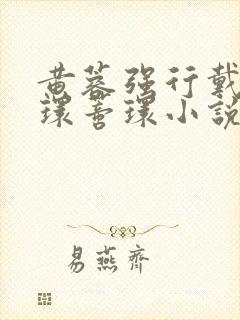 黄蓉强行戴
环蒂环小说
易燕齐